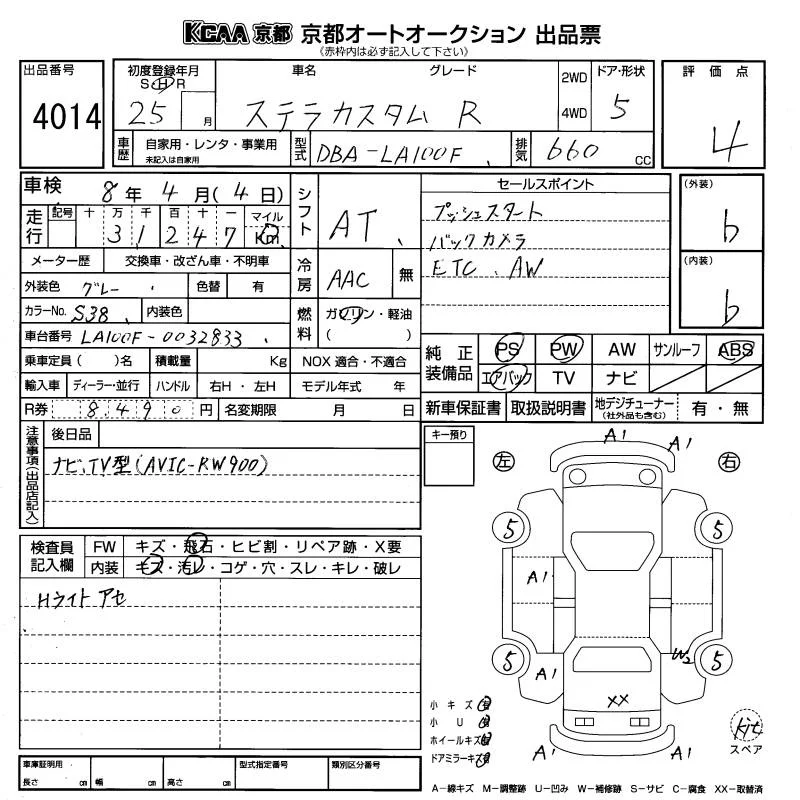 KCAA 京都 京都オートオークション 出品票
(赤枠内は必ず記入して下さい)
出品番号
4014
初度登録年月
S H R
25 月
車名 グレード
ステラカスタム R
2WD
4WD
ドア・形状
5
評価点
4
車歴
自家用・レンタ・事業用
未記入は自家用
型式
DBA-LA100F
排気
660 cc
車検 8年 4月(4日)
走行
記号 十 万 千 百 十 一 マイル
3 1 2 4 7 Km
シフト
AT
セールスポイント
プッシュスタート
バックカメラ
ETC、AW
(外装)
b
(内装)
b
メーター歴 交換車・改ざん車・不明車
冷房
AAC 無
外装色 グレー 色替 有
カラーNo. S38 内装色
燃料
ガソリン・軽油
( )
車台番号 LA100F-0032833
乗車定員( )名 積載量 Kg NOX 適合・不適合
輸入車 ディーラー・並行 ハンドル 右H・左H モデル年式 年
R券 8,490円 名変期限 月 日
純正装備品
PS PW AW サンルーフ ABS
エアバック TV ナビ
新車保証書 取扱説明書 地デジチューナー(社外品も含む) 有・無
注意事項(出品店記入)
後日品
ナビ、TV型(AVIC-RW900)
キー預り
検査員記入欄
FW キズ・飛石・ヒビ割・リペア跡・X要
内装 キズ・汚レ・コゲ・穴・スレ・キレ・破レ
Hライトアセ
左 右
A1 A1
5 5
A1
5 5
A1 W2
XX
A1 A1
小キズ 有
小U 有
ホイールキズ 有
ドアミラーキズ 有
kit
スペア
車庫証明用
長さ cm 幅 cm 高さ cm
型式指定番号 類別区分番号
A-線キズ M-調整跡 U-凹み W-補修跡 S-サビ C-腐食 XX-取替済